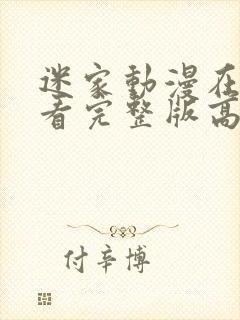 迷家動漫在
看完整版高
付辛博